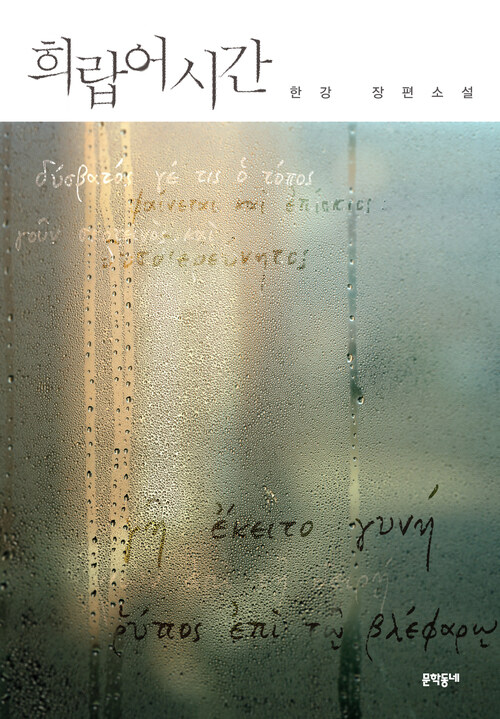 희랍어 시간
한강 장편소설
δύσβατός γέ τις ὁ τόπος
φαίνεται καὶ ἐπίσκιος
γοῦν σκοτεινὸς καὶ
δυσδιερεύνητος
γῆ ἔκειτο γυνή
ῥύπος ἐπὶ τῷ βλέφαρῳ
문학동네